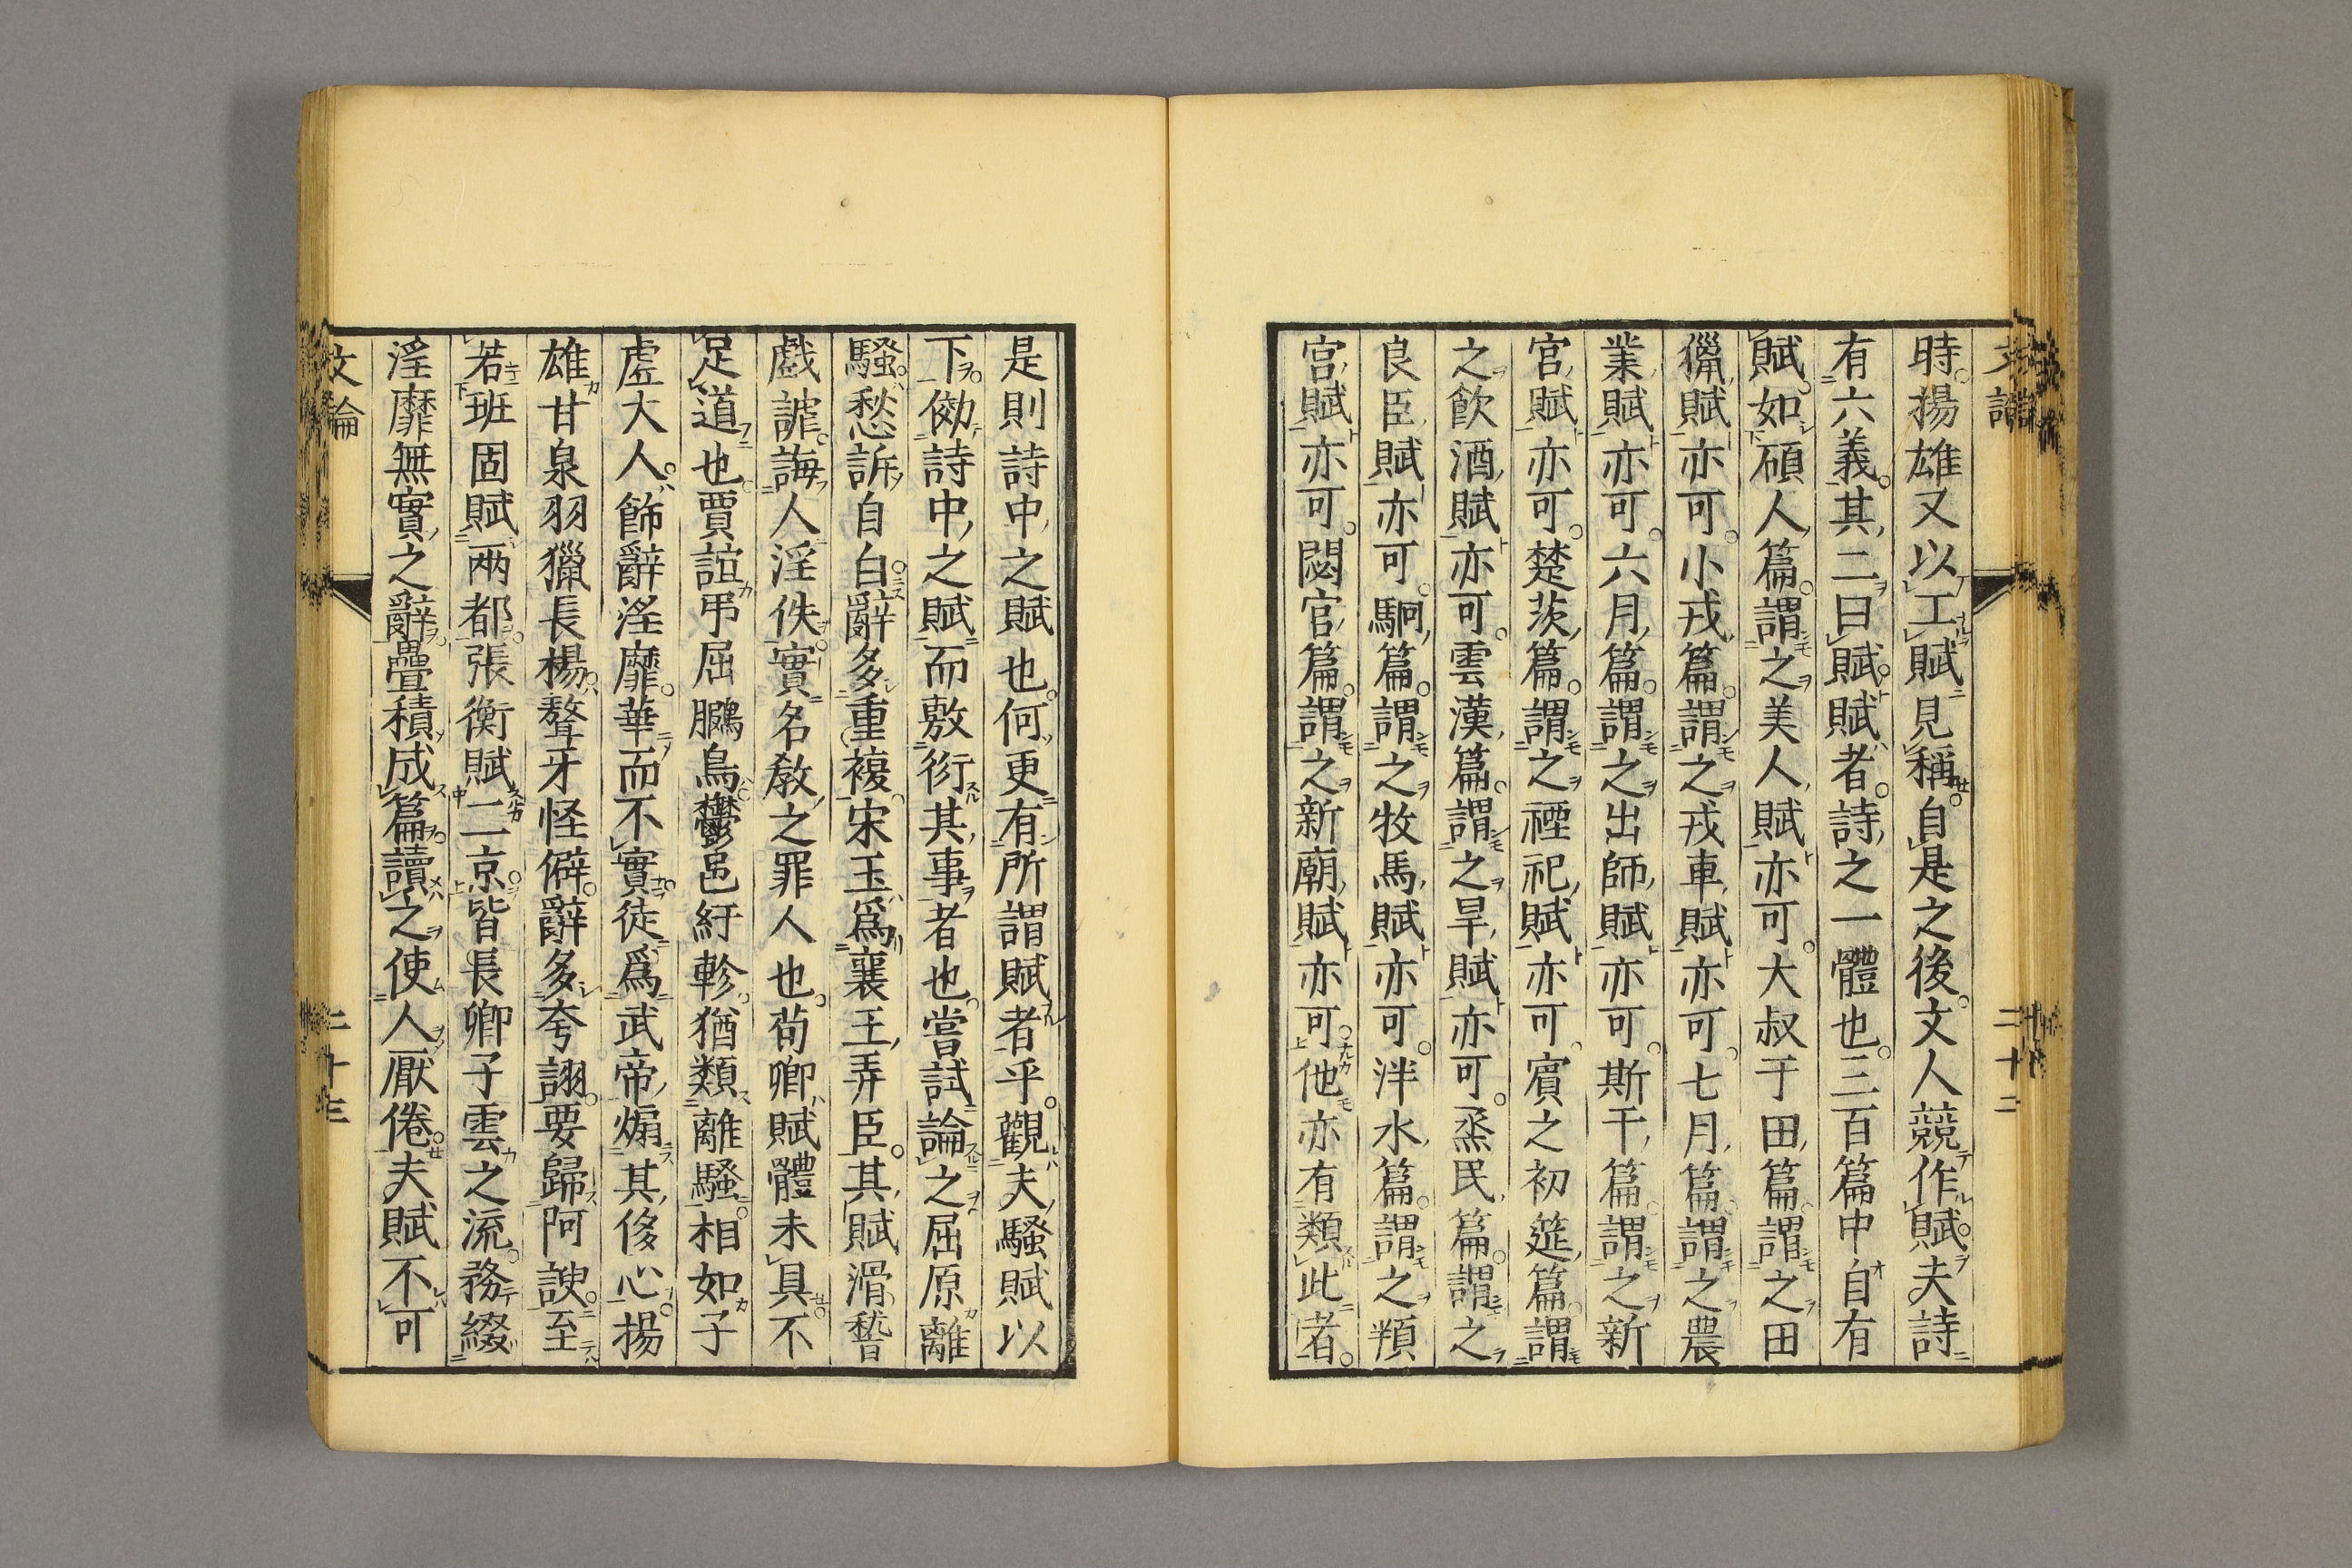 時揚雄又以工賦見稱自是之後文人競作賦夫詩
有六義其二曰賦賦者詩之一體也三百篇中自有
賦如碩人篇謂之美人賦亦可大叔于田篇謂之田
獵賦亦可小戎篇謂之戎車賦亦可七月篇謂之農
業賦亦可六月篇謂之出師賦亦可斯干篇謂之新
宮賦亦可楚茨篇謂之禋祀賦亦可賓之初筵篇謂
之飮酒賦亦可雲漢篇謂之旱賦亦可烝民篇謂之
良臣賦亦可駉篇謂之牧馬賦亦可泮水篇謂之頖
宮賦亦可閟宮篇謂之新廟賦亦可他亦有類此者
是則詩中之賦也何更有所謂賦者乎觀夫騷賦以
下傚詩中之賦而敷衍其事者也嘗試論之屈原離
騷愁訴自白辭多重複宋玉爲襄王弄臣其賦滑稽
戲謔誨人淫佚實名敎之罪人也荀卿賦體未具不
足道也賈誼弔屈鵩鳥鬱邑紆軫猶類離騷相如子
虛大人飾辭淫靡華而不實徒爲武帝煽其侈心揚
雄甘泉羽獵長楊聱牙怪僻辭多夸詡要歸阿諛至
若班固賦兩都張衡賦二京皆長卿子雲之流務綴
淫靡無實之辭疊積成篇讀之使人厭倦夫賦不可
文論
二十三